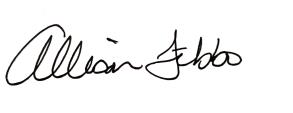 Allison Febbo